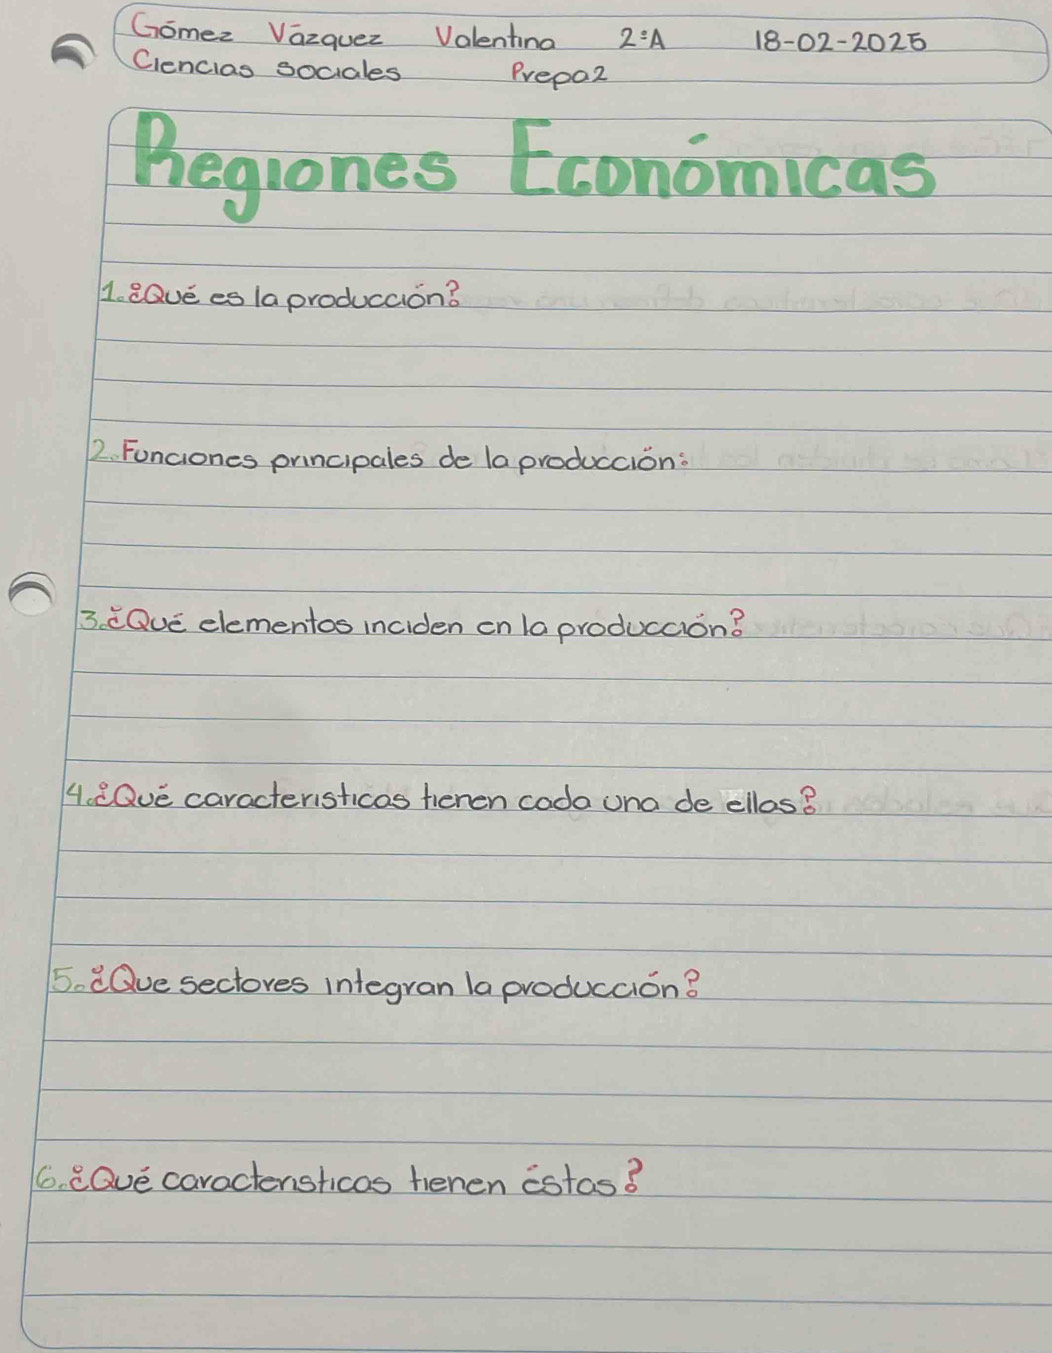 Gómez Vázquez Valentina 2°A 18-02-2025
Ciencias sociales Prepa2
Regiones Económicas
1. ¿Qué es la producción?
2. Funciones principales de la producción:
3. ¿Qué elementos inciden en la producción?
4. ¿Qué caracteristicas tienen cada una de ellas?
5. ¿Que sectores integran la producción?
6. ¿Qué caracteristicas tienen éstas?